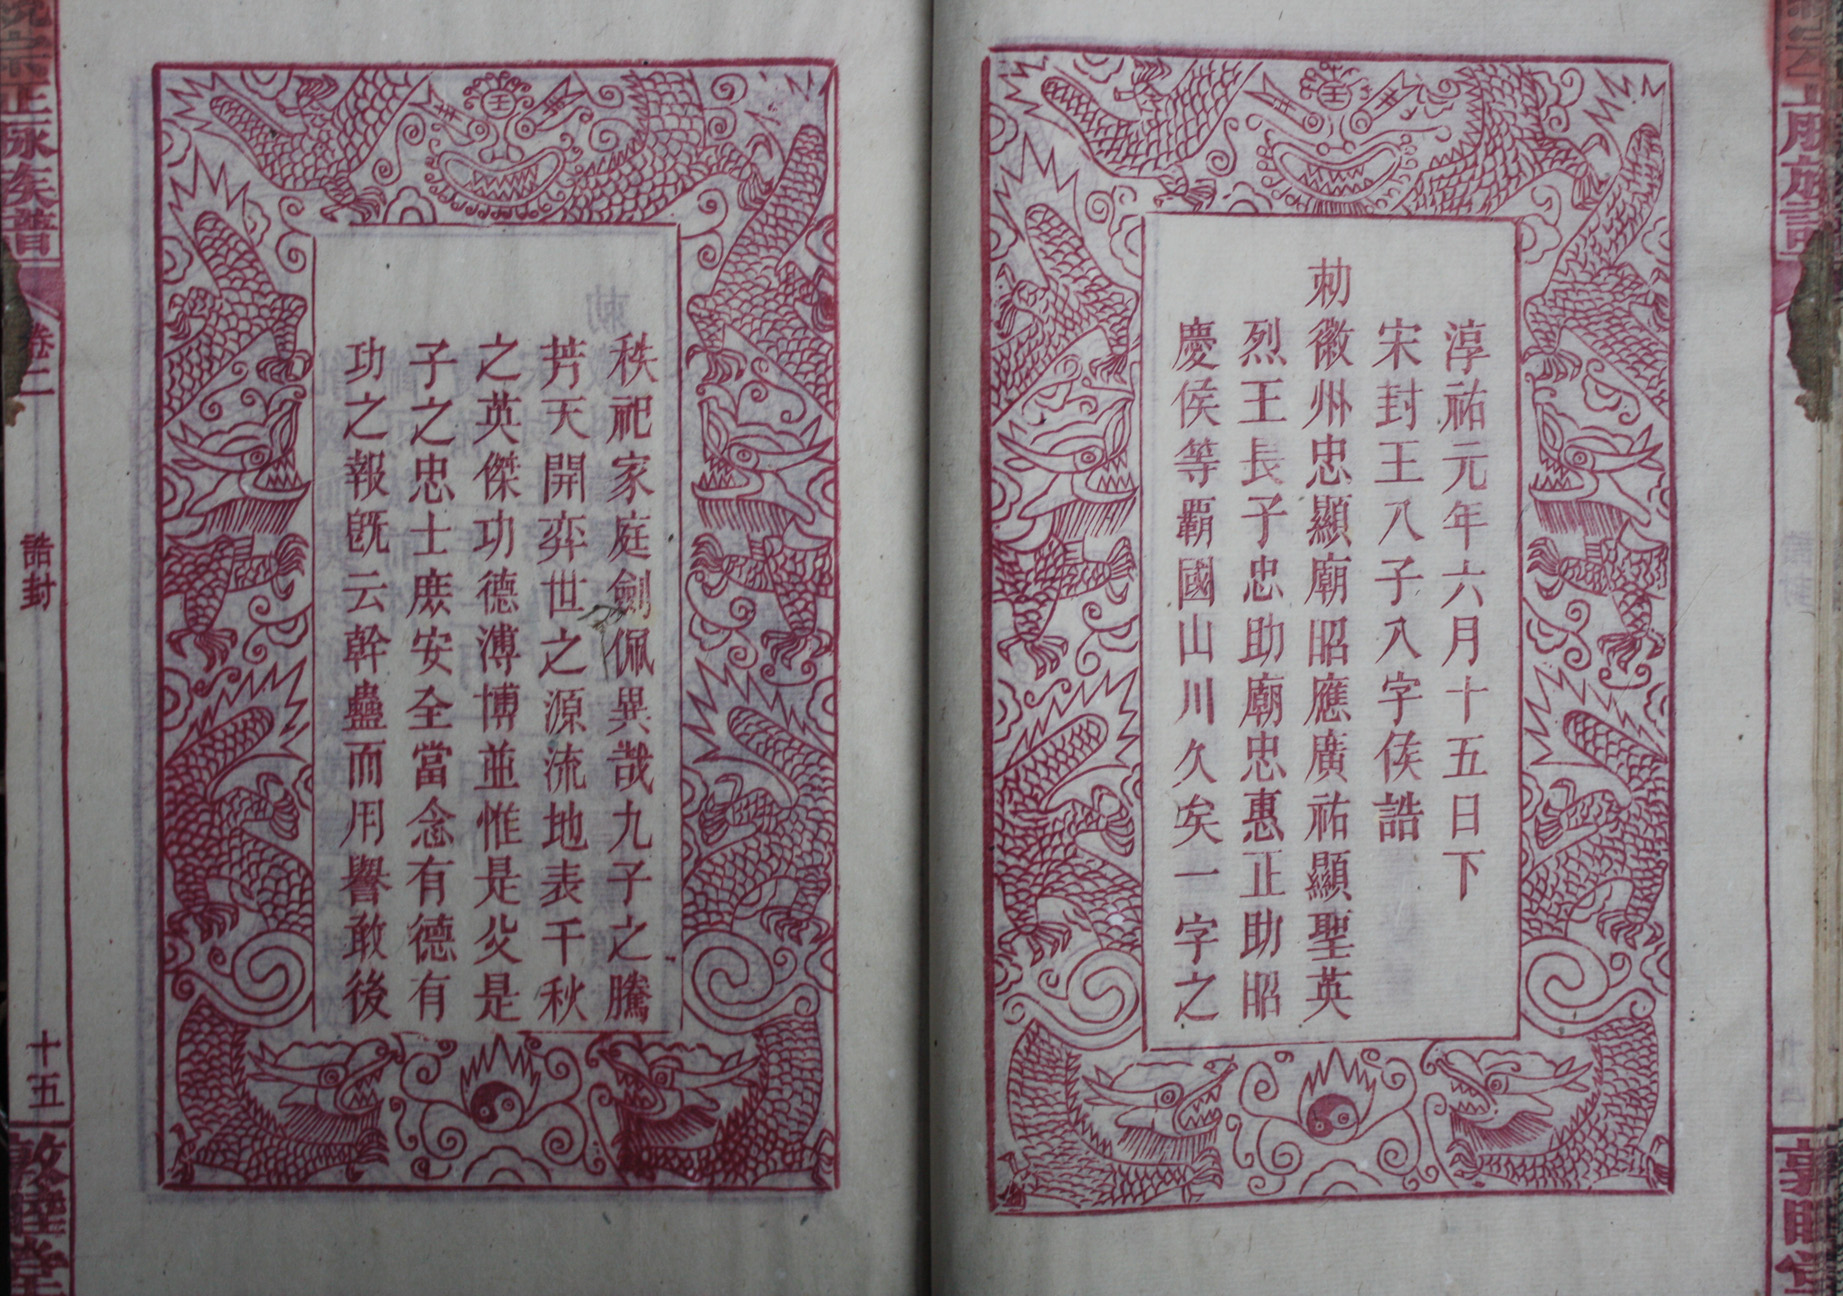 淳祐元年六月十五日下
宋封王八子八字侯誥
勑徽州忠顯廟昭應廣祐顯聖英
烈王長子忠助廟忠惠正助昭
慶侯等覇國山川久矣一字之
秩祀家庭劍佩異哉九子之騰
芳天開弈世之源流地表千秋
之英傑功德溥博並惟是父是
子之忠士庶安全當念有德有
功之報既云幹蠱而用譽敢後
正脉族譜
卷二
誥封
十五
敦睦堂